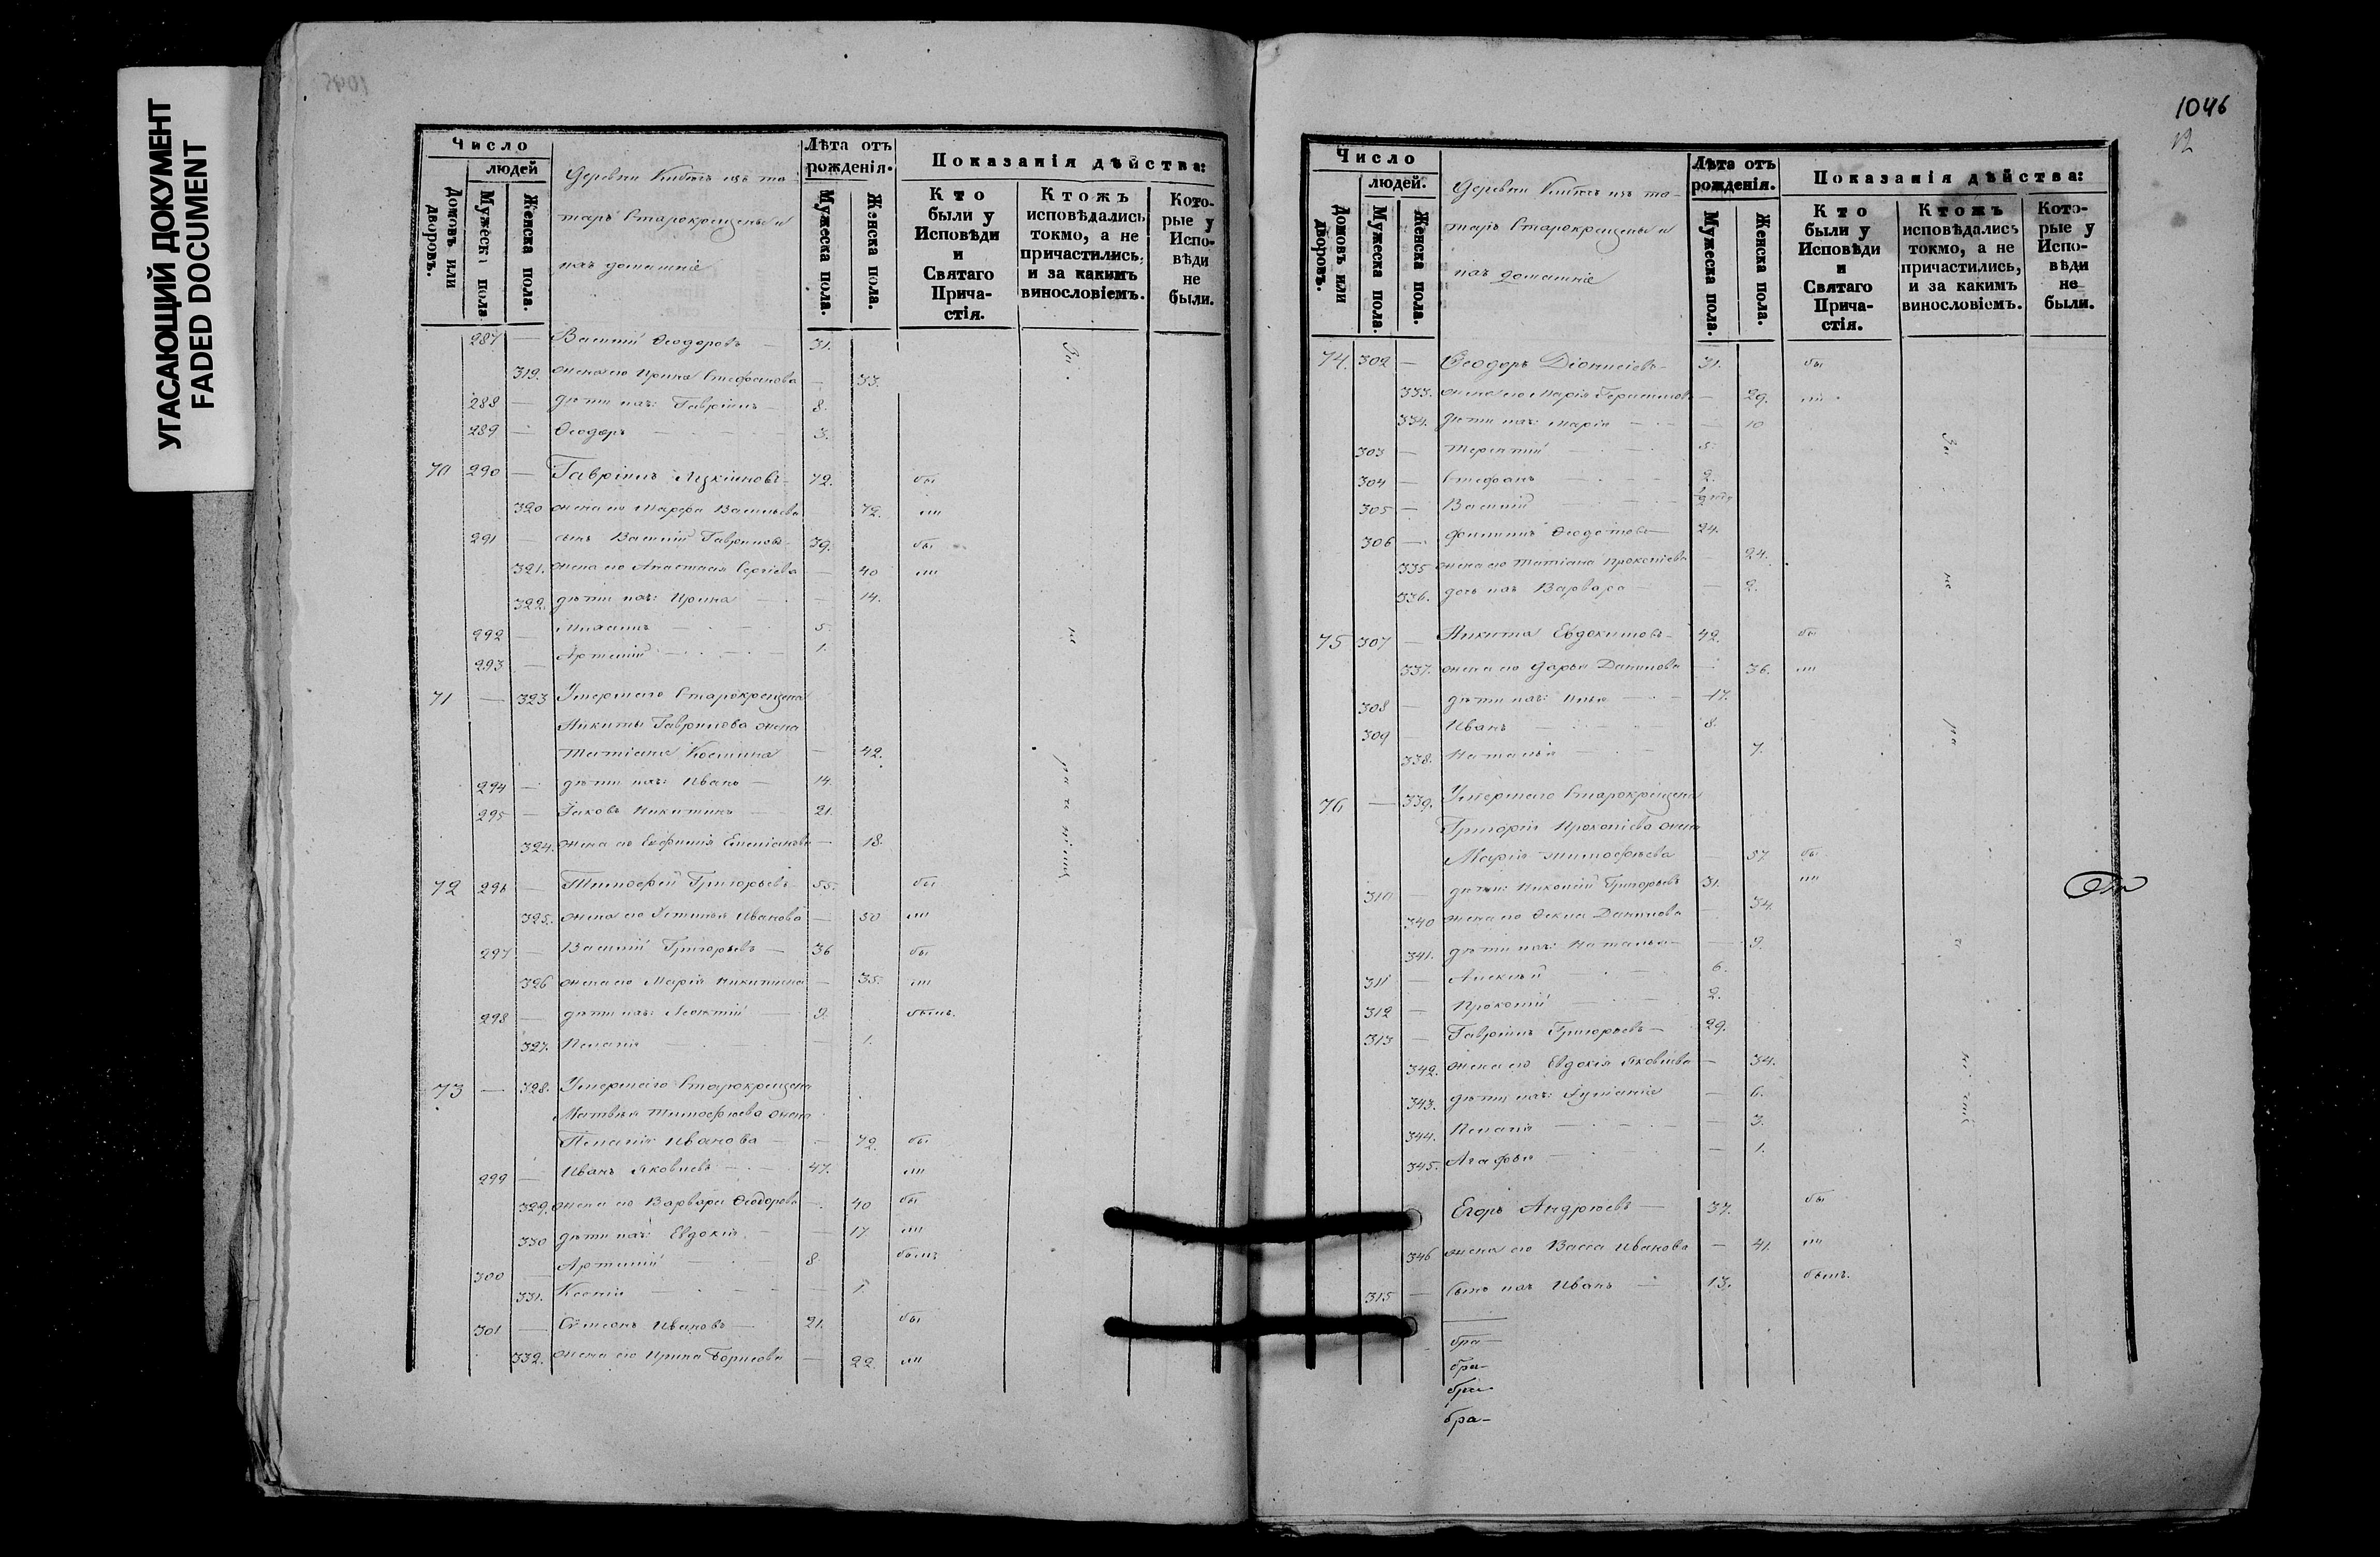 УГАСАЮЩИЙ ДОКУМЕНТ
FADED DOCUMENT
Число
людей
Домовъ или дворовъ.
Мужеска пола
Женска пола.
Деревни из та-
таръ Старокрещены и
ихъ домашніе
Лѣта отъ рожденія.
Мужеска пола.
Женска пола.
Показанія дѣйства:
Кто были у Исповѣди и Святаго Прича-стія.
Ктожъ исповѣдались токмо, а не причастились, и за какимъ винословіемъ.
Кото-рые у Испо-вѣди не были.
287 — Василій Ѳеодоровъ — 31.
319. жена его Ирина Стефанова — 33.
288 — дѣти ихъ: Гавріилъ — 8.
289 — Ѳеодоръ — 3.
70 290 — Гавріилъ 72. бы
320 жена его Марфа Васильева 72. ли
291 — сынъ Василій Гавриловъ 39. бы
321. жена его Анастасія Сергіева — 40 ли
322. дѣти ихъ: Ирина — 14.
292 — Михаилъ — 5.
293 — Артемій — 1.
71 — 323 Умершаго Старокрещена
Никиты Гаврилова жена
Татіана Козмина — 42.
294 — дѣти ихъ: Иванъ — 14.
295 — Іаковъ Никитинъ — 21.
324. жена его Евфимія Емеліанова — 18.
72 296 — Тимофей Григорьевъ 55. бы
325. жена его Устинья Иванова — 50 ли
297 — Василій Григорьевъ — 36 бы
326 жена его Марія Никитина — 35. ли
298 — дѣти ихъ: Леонтій — 9. былъ.
327. Пелагія — 1.
73 — 328. Умершаго Старокрещена
Матвѣя Тимофѣева жена
Пелагія Иванова — 72. бы
299 — Иванъ Яковлевъ — 47. ли
329. жена его Варвара Ѳеодорова — 40 бы
330 дѣти ихъ: Евдокія — 17. ли
300 — Артемій — 8 былъ
331. Ксенія — 1.
301 — Сѵмеонъ Ивановъ — 21. бы
332. жена его Ирина Борисова — 22. ли
За
не
1046
Число
людей.
Домовъ или дворовъ.
Мужеска пола.
Женска пола.
Деревни изъ та-
таръ Старокрещены и
ихъ домашніе
Лѣта отъ рожденія.
Мужеска пола.
Женска пола.
Показанія дѣйства:
Кто были у Исповѣди и Святаго Прича-стія.
Ктожъ исповѣдались токмо, а не причастились, и за какимъ винословіемъ.
Кото-рые у Испо-вѣди не были.
74. 302 — Ѳеодоръ Діонисіевъ — 31. бы
333. жена его Марія — 29. ли
334. дѣти ихъ: Марія — 10
303 — Терентій — 5.
304 — Стефанъ — 2.
305 — Василій — 1/2 года
306 — Филиппъ Ѳеодотовъ — 24.
335 жена его Татіана Прокопіева — 24.
336. дочь ихъ Варвара — 2.
75 307 — Никита Евдокимовъ — 42. бы
337. жена его Дарья Данилова — 36. ли
308 — дѣти ихъ: Илья — 17.
309 — Иванъ — 8.
338. Наталья — 7.
76 — 339. Умершаго Старокрещена
Григорія Прокопіева жена
Марія Тимофѣева — 57 бы
310 — дѣти: Григорьевъ 31. ли
340 жена его Ѳекла Данилова — 34.
341. дѣти ихъ: Наталья — 9.
311 — Алексѣй — 6.
312 — Прокопій — 2.
313 — Гавріилъ Григорьевъ — 29.
342. жена его Евдокія Яковлева — 34.
343. дѣти ихъ: Іуліанія — 6.
344. Пелагія — 3.
345. Агафья — 1.
Егоръ Андреевъ — 37. бы
346 жена его Васса Иванова — 41. ли
315 — Сынъ ихъ Иванъ — 13. былъ.
бра—
бра—
бра—
бра—
За
не